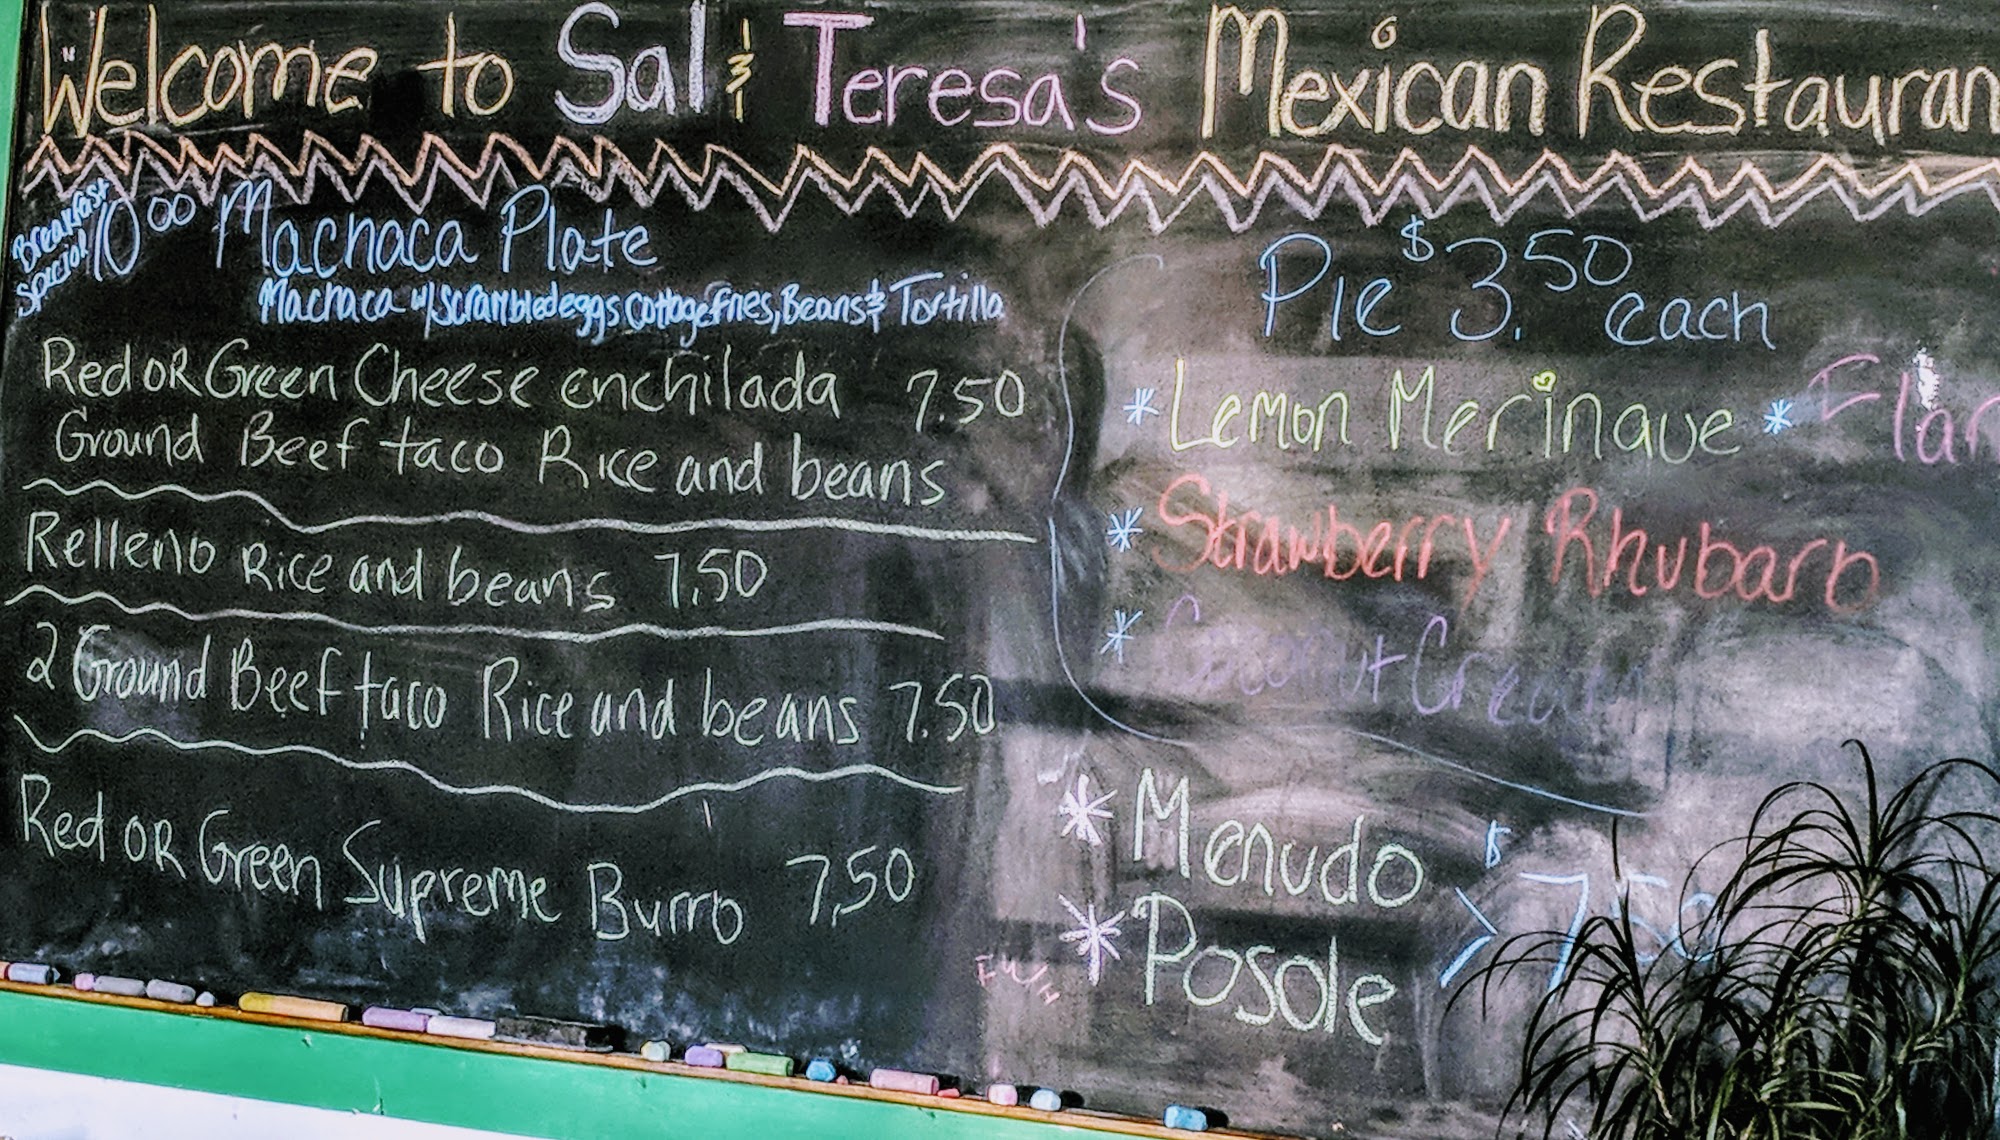 Welcome to Sal & Teresa's Mexican Restauran
Breakfast
Special
10 00 Machaca Plate
Machaca w/ Scrambled eggs Cottage Fries, Beans & Tortilla
Red OR Green Cheese enchilada 7.50
Ground Beef taco Rice and beans
Relleno Rice and beans 7.50
2 Ground Beef taco Rice and beans 7.50
Red OR Green Supreme Burro 7.50
Pie $3.50 each
* Lemon Merinque * Flan
* Strawberry Rhubarb
* Coconut Cream
* Menudo
* Posole
> $7.50